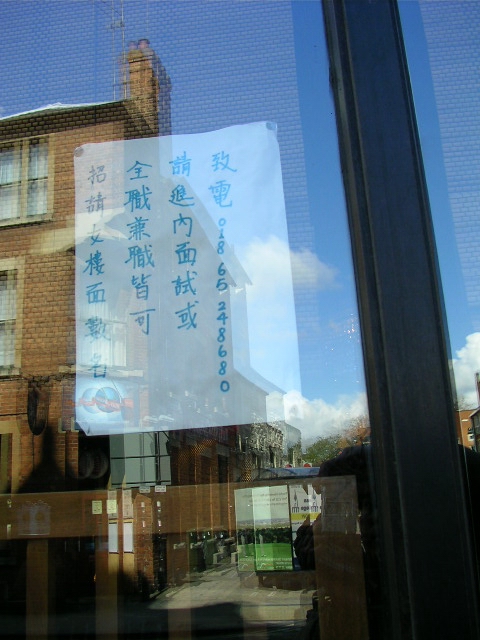 招請女樓面數名
全職兼職皆可
請進內面試或
致電 01865 248680